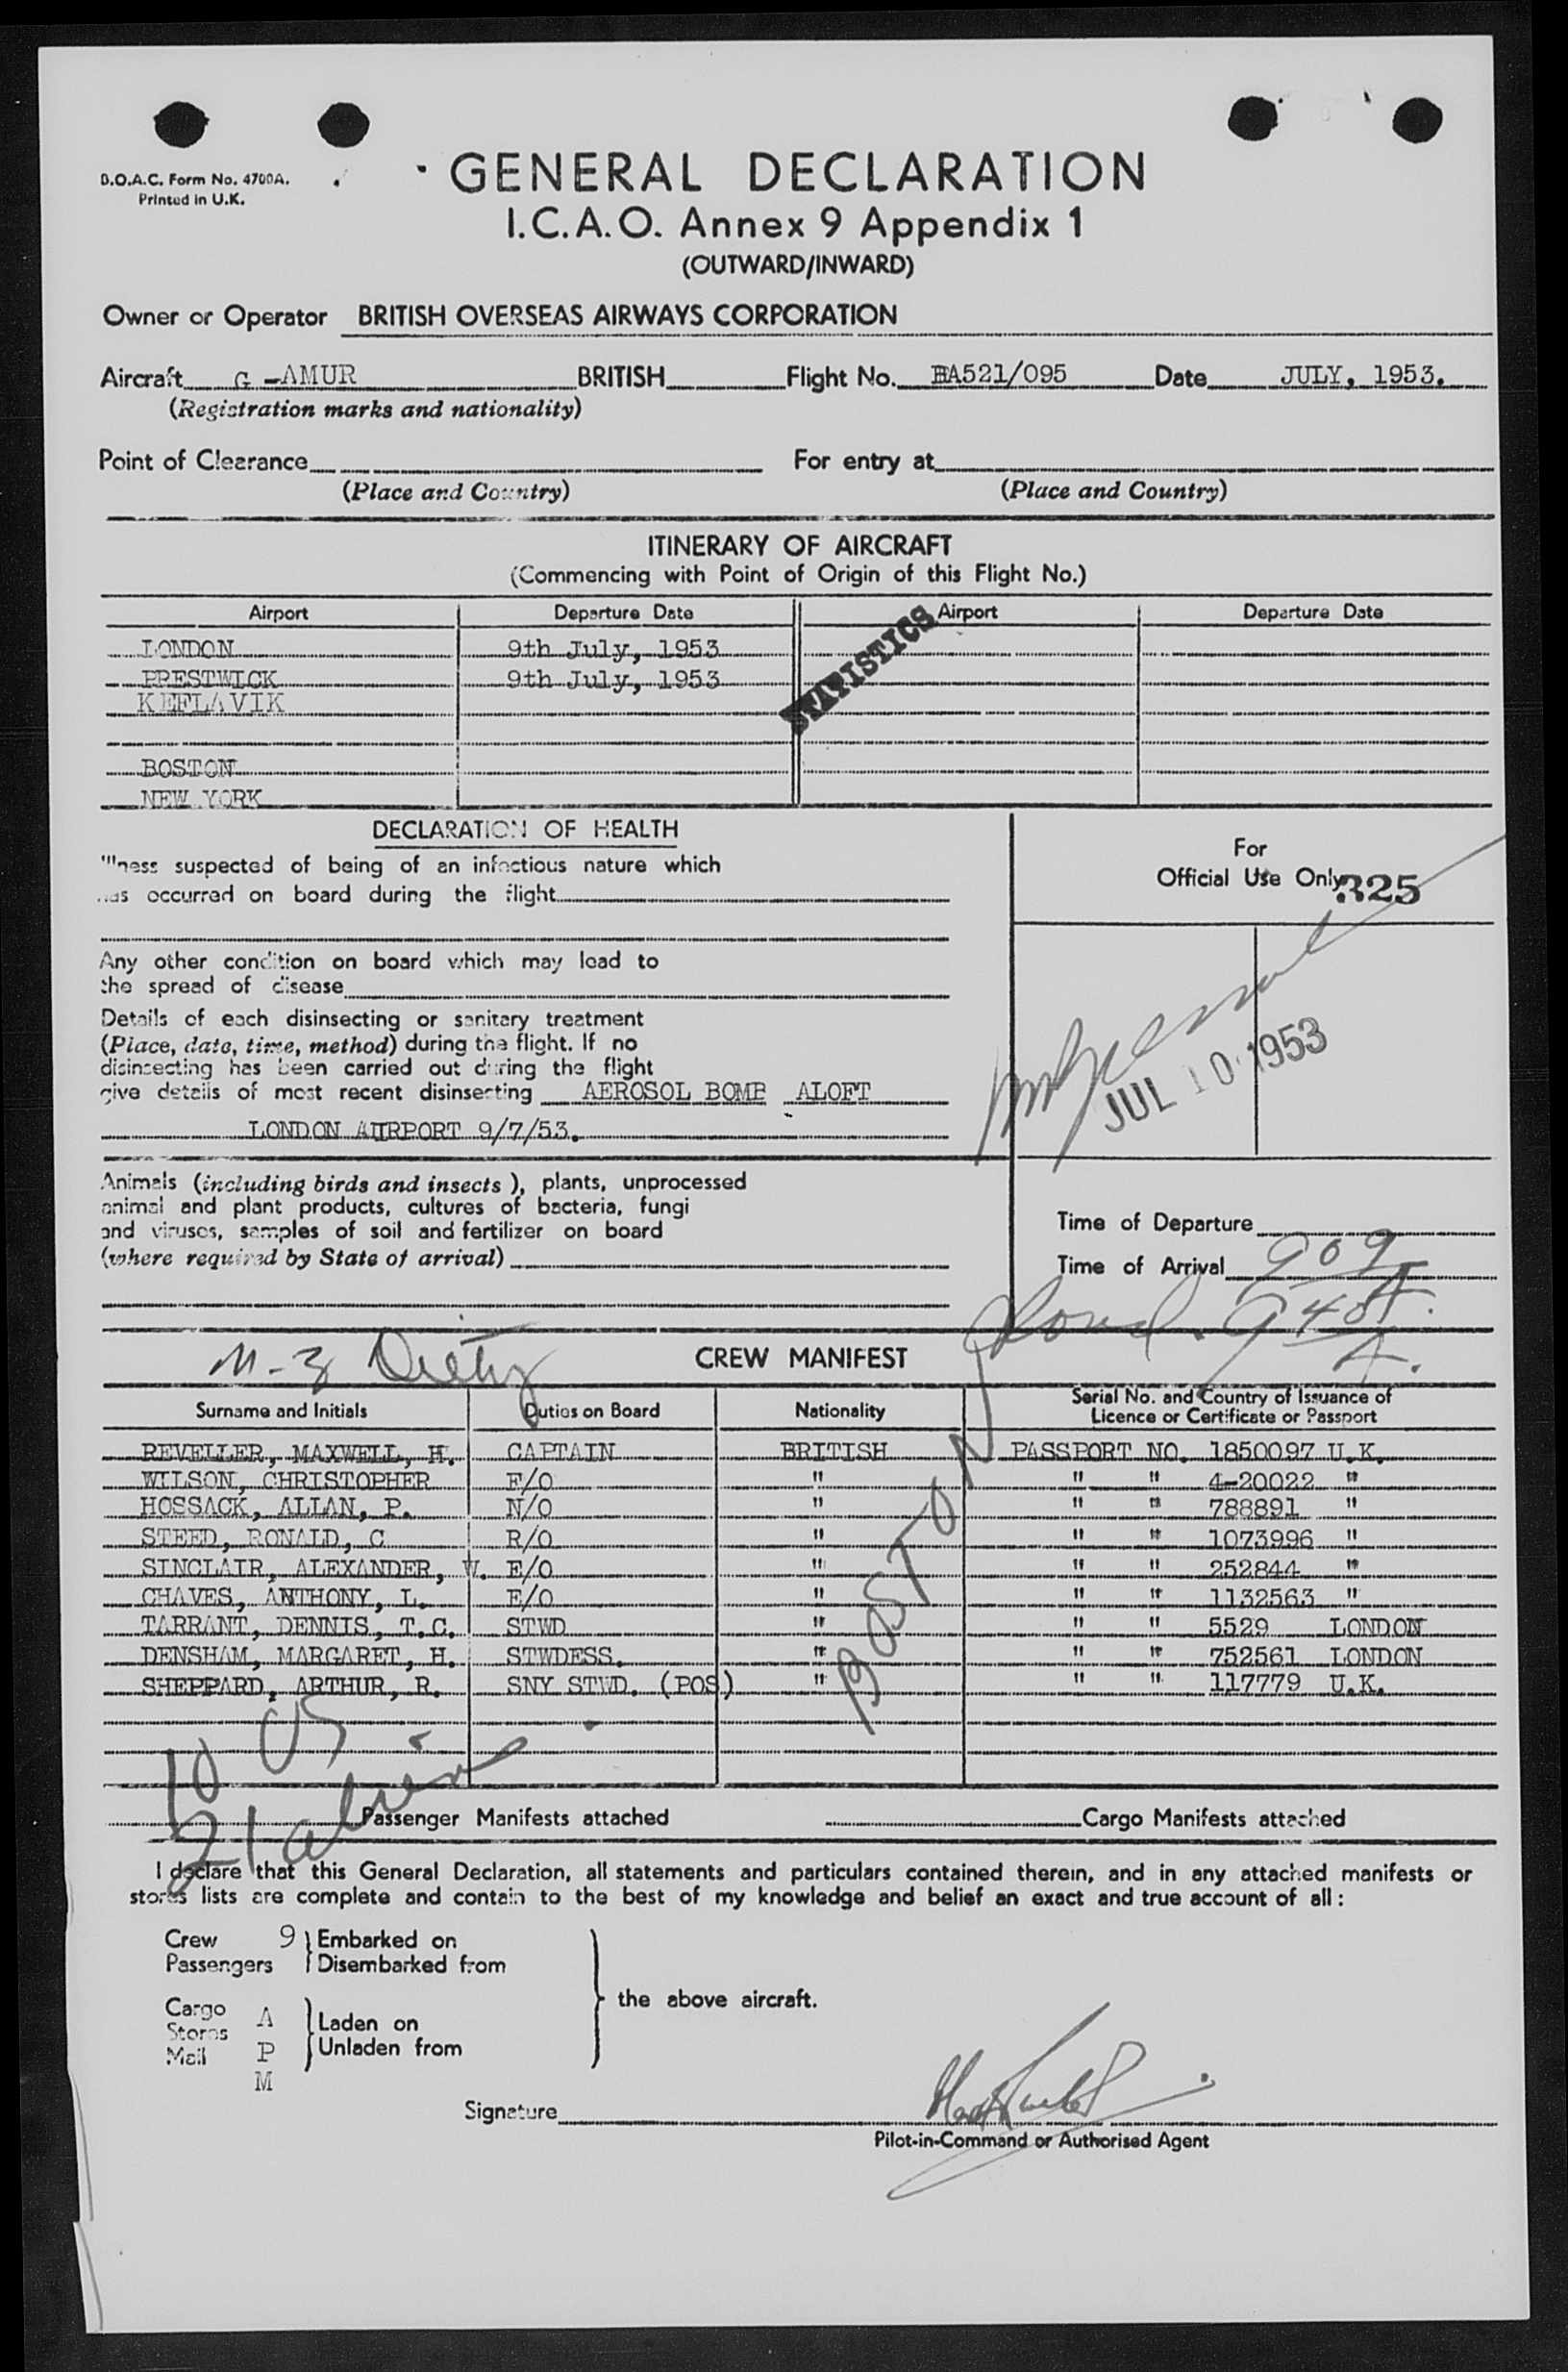 B.O.A.C. Form No. 4700A.
Printed in U.K.
GENERAL DECLARATION
I.C.A.O. Annex 9 Appendix 1
(OUTWARD/INWARD)
Owner or Operator BRITISH OVERSEAS AIRWAYS CORPORATION
Aircraft G-AMUR BRITISH Flight No. BA521/095 Date JULY, 1953.
(Registration marks and nationality)
Point of Clearance For entry at
(Place and Country) (Place and Country)
ITINERARY OF AIRCRAFT
(Commencing with Point of Origin of this Flight No.)
Airport Departure Date Airport Departure Date
STATISTICS
LONDON 9th July, 1953
PRESTWICK 9th July, 1953
KEFLAVIK
BOSTON
NEW YORK
DECLARATION OF HEALTH
Illness suspected of being of an infectious nature which
has occurred on board during the flight
Any other condition on board which may lead to
the spread of disease
Details of each disinsecting or sanitary treatment
(Place, date, time, method) during the flight. If no
disinsecting has been carried out during the flight
give details of most recent disinsecting AEROSOL BOMB ALOFT
LONDON AIRPORT 9/7/53.
For
Official Use Only
325
JUL 10 1953
Animals (including birds and insects), plants, unprocessed
animal and plant products, cultures of bacteria, fungi
and viruses, samples of soil and fertilizer on board
(where required by State of arrival)
Time of Departure
Time of Arrival 909 A
940 A.
M-3 Dietz
CREW MANIFEST
Surname and Initials Duties on Board Nationality Serial No. and Country of Issuance of
Licence or Certificate or Passport
REVELLER, MAXWELL, H. CAPTAIN BRITISH PASSPORT NO. 1850097 U.K.
WILSON, CHRISTOPHER F/O " " " 4-20022 "
HOSSACK, ALLAN, P. N/O " " " 788891 "
STEED, RONALD, C R/O " " " 1073996 "
SINCLAIR, ALEXANDER, W. E/O " " " 252844 "
CHAVES, ANTHONY, L. E/O " " " 1132563 "
TARRANT, DENNIS, T.C. STWD " " " 5529 LONDON
DENSHAM, MARGARET, H. STWDESS. " " " 752561 LONDON
SHEPPARD, ARTHUR, R. SNY STWD. (POS) " " " 117779 U.K.
BOSTON
10 US
21 alien
Passenger Manifests attached Cargo Manifests attached
I declare that this General Declaration, all statements and particulars contained therein, and in any attached manifests or
stores lists are complete and contain to the best of my knowledge and belief an exact and true account of all:
Crew 9 Embarked on
Passengers Disembarked from
the above aircraft.
Cargo A Laden on
Stores
Mail P Unladen from
M
Signature
Pilot-in-Command or Authorised Agent